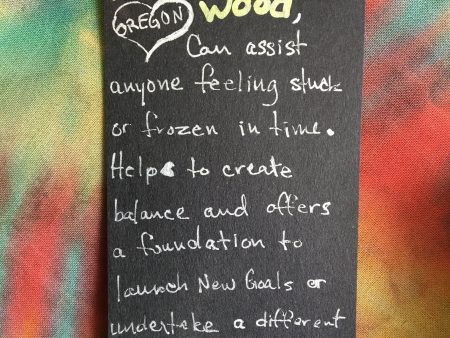 OREGON Wood,
Can assist
anyone feeling stuck
or frozen in time.
Helps to create
balance and offers
a foundation to
launch New Goals or
undertake a different